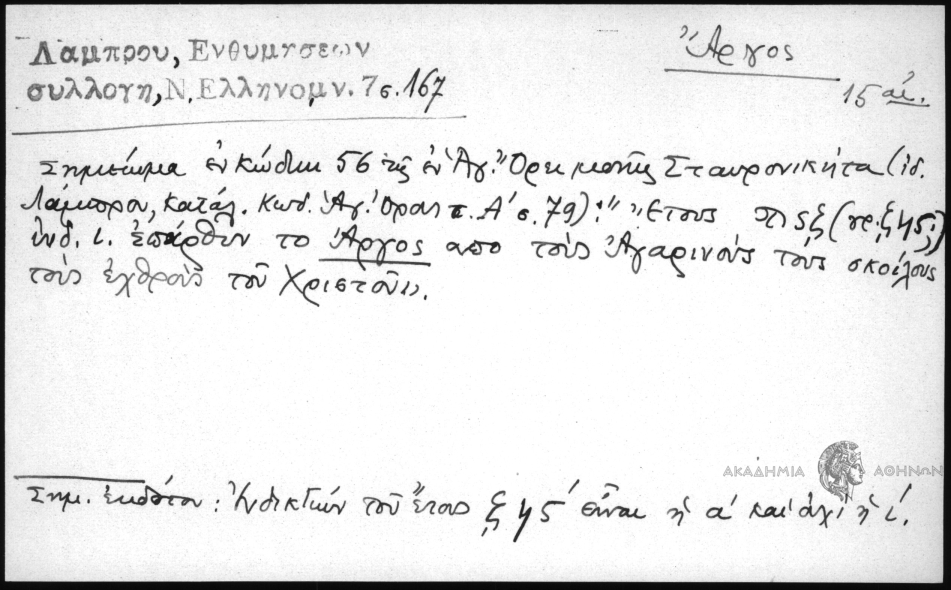 Λαμπρου, Ενθυμησεων
συλλογη, Ν. Ελληνομν. 7 σ. 167
Ἄργος
15 αἰ.
Σημείωμα ἐν Κώδικι 56 τῆς ἐν Ἁγ. Ὄρει μονῆς Σταυρονικήτα (ἰδ.
Λάμπρου, Κατάλ. Κωδ. Ἁγ. Ὄρους τ. Α' σ. 79): "Ἔτους
ἰνδ. ι. ἐπάρθην το Ἄργος απο τοὺς Ἀγαρινοὺς τοὺς σκοίλους
τοὺς ἐχθροὺς τοῦ Χριστοῦ".
ΑΚΑΔΗΜΙΑ ΑΘΗΝΩΝ
Σημ. ἐκδότου: Ἰνδικτιών τοῦ ἔτους ͵ϛϡοε' εἶναι ἡ α' και ὀχι ἡ ι'.